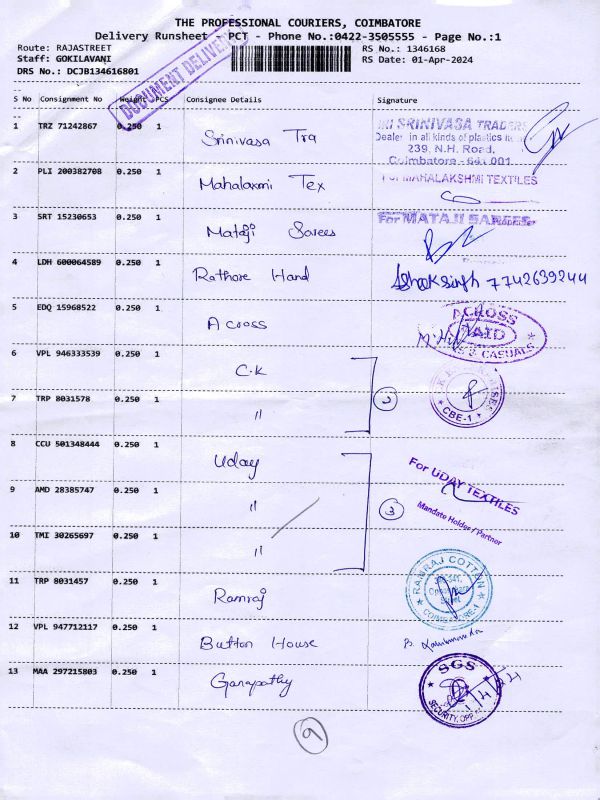 THE PROFESSIONAL COURIERS, COIMBATORE
Delivery Runsheet - PCT - Phone No.:0422-3505555 - Page No.:1
Route: RAJASTREET
RS No.: 1346168
Staff: GOKILAVANI
RS Date: 01-Apr-2024
DRS No.: DCJB134616801
DOCUMENT DELIVERY
S No Consignment No Weight PCS Consignee Details Signature
1 TRZ 71242867 0.250 1 Srinivasa Tra
SRINIVASA TRADERS
Dealer in all kinds of plastics
239, N.H. Road,
Coimbatore - 641 001
2 PLI 200382708 0.250 1 Mahalaxmi Tex
For MAHALAKSHMI TEXTILES
3 SRT 15230653 0.250 1 Mataji Sarees
For MATAJI SAREES
4 LDH 600064589 0.250 1 Rathore Hand Ashok singh 7742639244
5 EDQ 15968522 0.250 1 Across
ACROSS
CASUALS
6 VPL 946333539 0.250 1 C.K
7 TRP 8031578 0.250 1 " 2
CBE-1
8 CCU 501348444 0.250 1 Uday
For UDAY TEXTILES
9 AMD 28385747 0.250 1 " 3
Mandate Holder / Partner
10 TMI 30265697 0.250 1 "
11 TRP 8031457 0.250 1 Ramraj
RAMRAJ COTTON
COIMBATORE-1
12 VPL 947712117 0.250 1 Button House
13 MAA 297215803 0.250 1 Ganapathy
SGS
SECURITY, OPP
9